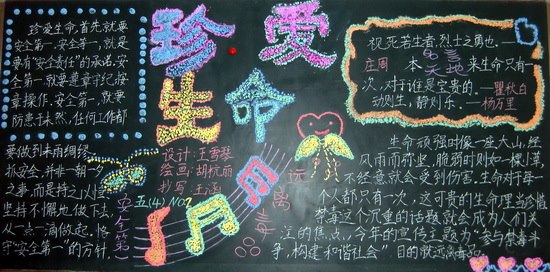 珍爱
生命
珍爱生命,首先就要
安全第一,安全第一,就是
要有"安全责任"的承诺,安
全第一就要遵章守纪按
章操作,安全第一,就要
防患于未然,任何工作都
要做到未雨绸缪,
抓安全,并非一朝一夕
之事,而是持之以恒
坚持不懈地做下去,
从一点一滴做起,恪
守"安全第一"的方针.
安全第一
五(4) NO2
设计:王雪琴
绘画:胡杭丽
抄写:王涵
远离毒
视死若生者,烈士之勇也.—
庄周 本 名言天地 来生命只有一
次,对于谁是宝贵的.—瞿秋白
动则生,静则乐.—杨万里
生命顽强时像一座大山,经
风雨而弥坚,脆弱时则如一棵小草,
不经意就会受到伤害.生命对每一
个人都只有一次,这可贵的生命理当珍惜
禁毒这个沉重的话题就会成为人们关
注的焦点,今年的宣传主题为"参与禁毒斗
争,构建和谐社会"目的就远离毒品.